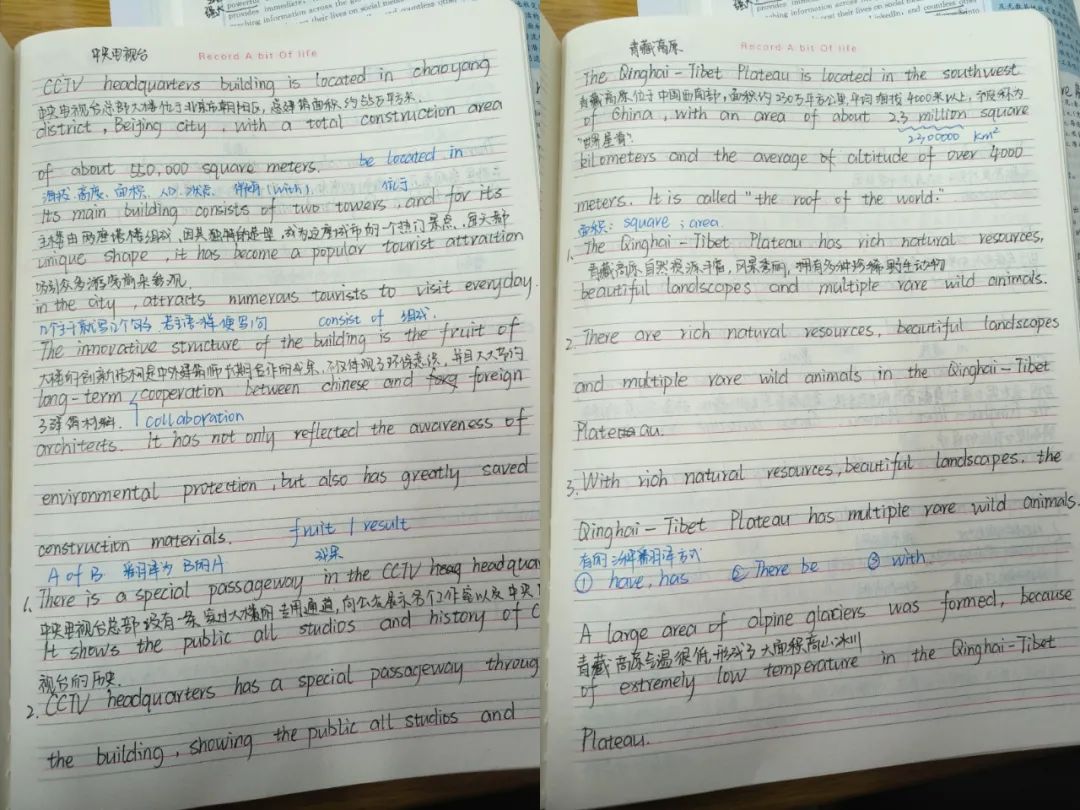 中央电视台
Record A bit Of life
CCTV headquarters building is located in chaoyang
中央电视台总部大楼位于北京市朝阳区,总建筑面积约55万平方米.
district, Beijing city, with a total construction area
of about 550,000 square meters. be located in
海拔,高度,面积,人口,状态, 伴随(with). 位于
Its main building consists of two towers, and for its
主楼由两座塔楼组成,因其独特的造型,成为这座城市的一个热门景点,每天都
unique shape, it has become a popular tourist attraction
吸引众多游客前来参观.
in the city, attracts numerous tourists to visit everyday.
几个主干就写几个句,若主语一样便写1句 consist of 组成.
The innovative structure of the building is the fruit of
大楼的创新结构是中外建筑师长期合作的成果,不仅体现了环保意识,并且大大节约
long-term cooperation between chinese and foreign
了建筑材料. collaboration
architects. It has not only reflected the awareness of
environmental protection, but also has greatly saved
construction materials. fruit / result
A of B 翻译为 B的A 成果
1. There is a special passageway in the CCTV headquar
中央电视台总部设有一条穿过大楼的专用通道,向公众展示各个工作室以及中央
It shows the public all studios and history of C
视台的历史.
2. CCTV headquarters has a special passageway throug
the building, showing the public all studios and
青藏高原
Record A bit Of life
The Qinghai-Tibet Plateau is located in the southwest
青藏高原位于中国西南部,面积约230万平方公里,平均海拔4000米以上,令被称为
of China, with an area of about 2.3 million square
"世界屋脊" 2300000 km²
kilometers and the average of altitude of over 4000
meters. It is called "the roof of the world."
面积: square ; area.
1. The Qinghai-Tibet Plateau has rich natural resources,
青藏高原自然资源丰富,风景秀丽,拥有多种珍稀野生动物
beautiful landscapes and multiple rare wild animals.
2. There are rich natural resources, beautiful landscapes
and multiple rare wild animals in the Qinghai-Tibet
Plateau.
3. With rich natural resources, beautiful landscapes, the
Qinghai-Tibet Plateau has multiple rare wild animals.
有的三种翻译方式
① have, has ② There be ③ with.
A large area of alpine glaciers was formed, because
青藏高原气温很低,形成了大面积高山冰川
of extremely low temperature in the Qinghai-Tibet
Plateau.